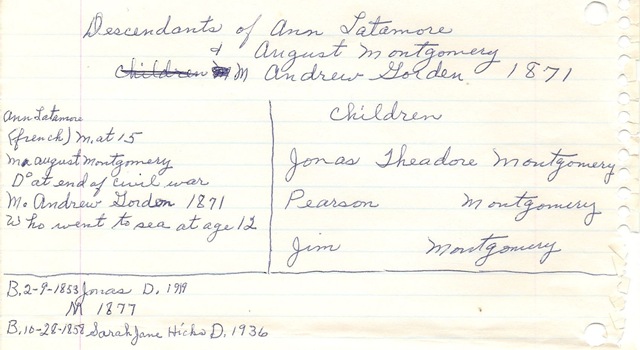 Descendants of Ann Latamore
& August Montgomery
Children M M Andrew Gorden 1871
Ann Latamore
(french) M. at 15
Ma august Montgomery
D° at end of civil war
M. Andrew Gorden 1871
Who went to sea at age 12
Children
Jonas Theadore Montgomery
Pearson Montgomery
Jim Montgomery
B. 2-9-1853 Jonas D. 1919
M 1877
B. 10-28-1858 Sarah Jane Hicks D. 1936